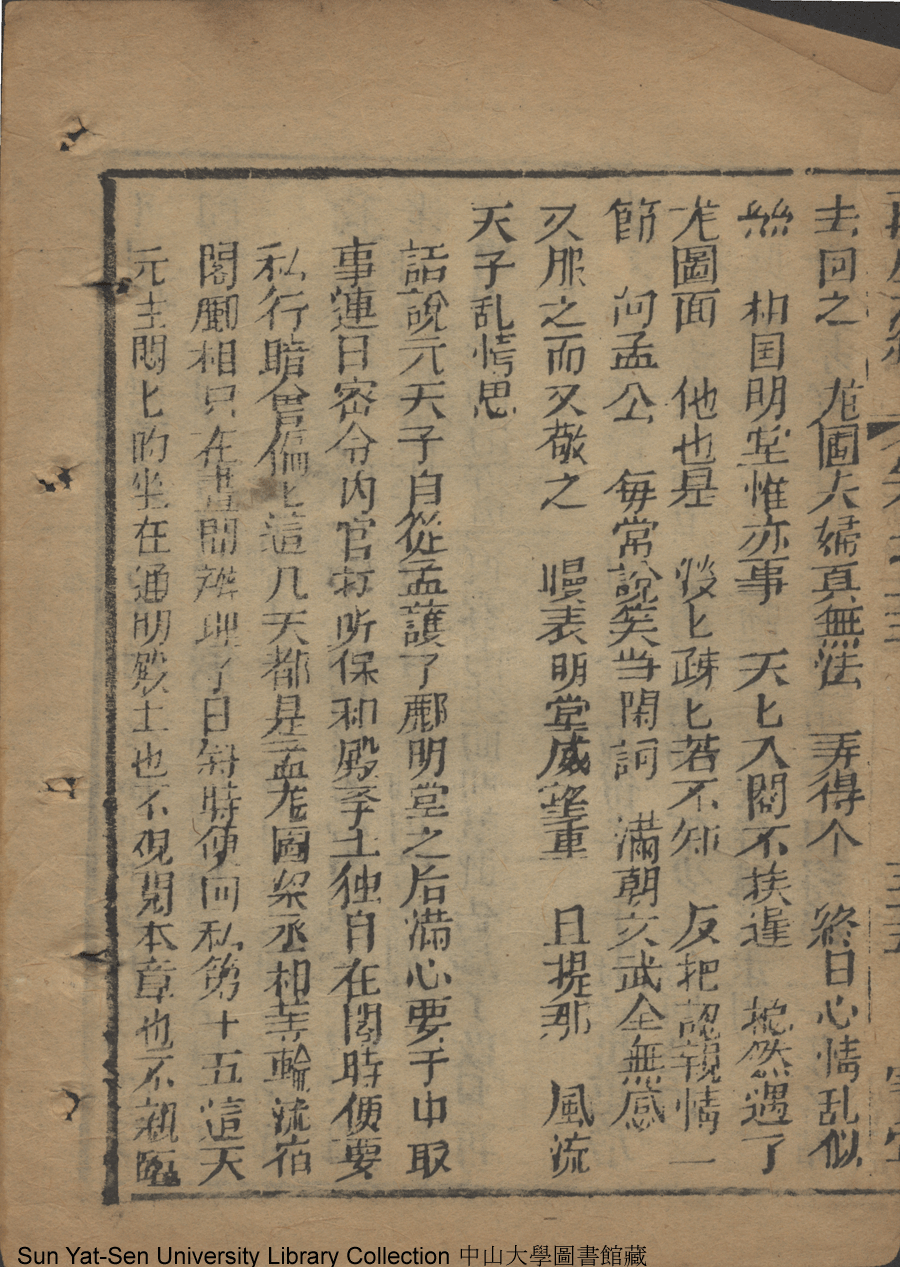 去回之　尨圖夫婦真無法　弄得个　終日心情乱似
絲　相国明堂惟亦事　天匕入閣不挨遲　搃然遇了
尨圖面　他也是　淡匕疎匕若不知　反把認親情一
節　问孟公　每常說笑当閑詞　滿朝文武全無感
又服之而又敬之　慢表明堂威望重　且提那　風流
天子乱情思
話說元天子自從孟護了酈明堂之后满心要于中取
事連日密令内官打听保和殿李土独自在閣時便要
私行暗會偏匕這几天都是孟尨圖梁丞相等輪流宿
閣酈相只在書間辨理了日斜時便回私第十五這天
元主悶匕的坐在通明殿土也不覌閱本章也不親臨
Sun Yat-Sen University Library Collection 中山大學圖書館藏